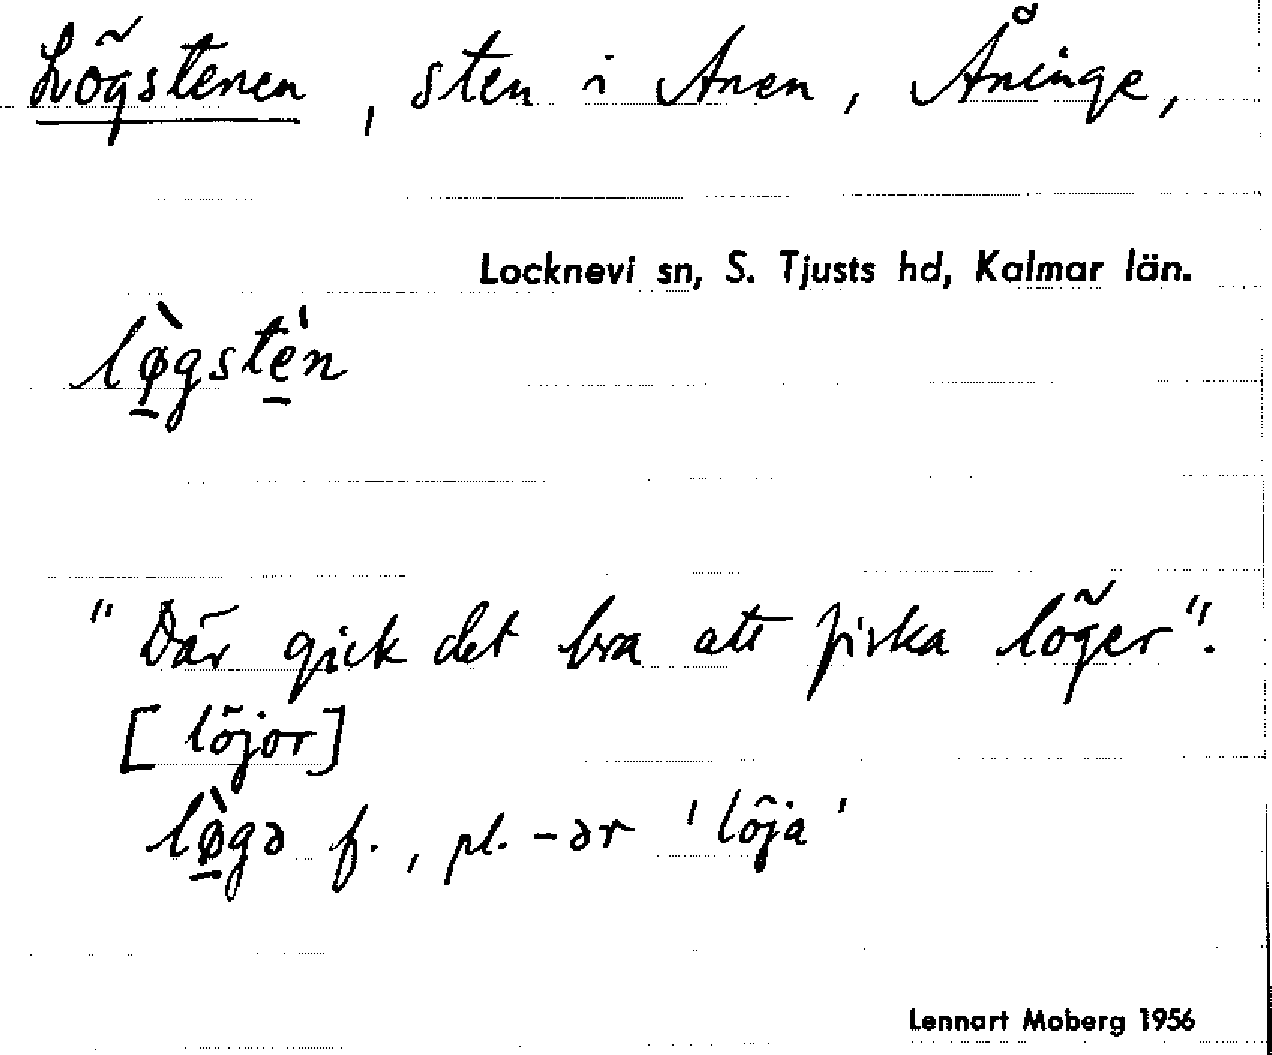 Lögstenen, sten i Anen, Åninge,
Locknevi sn, S. Tjusts hd, Kalmar län.
lø̀gstèn
"Där gick det bra att fiska löger".
[löjor]
lø̀gə f., pl. -ər 'löja'
Lennart Moberg 1956